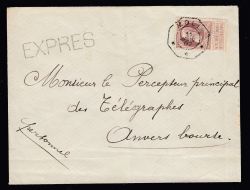 EXPRES
Monsieur le Percepteur principal
des Télégraphes
Anvers bourse.
personnel